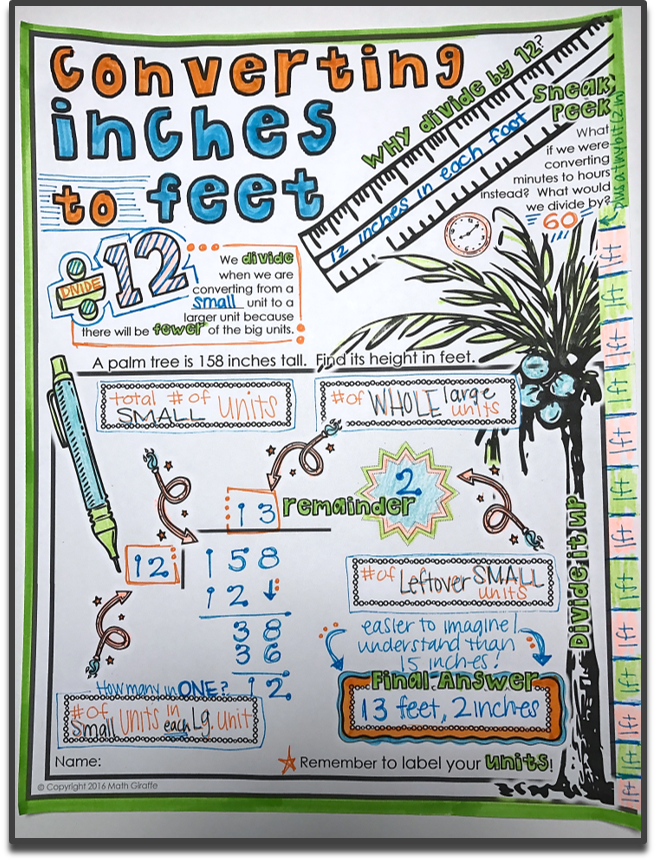 Converting
inches
to feet
WHY divide by 12?
12 inches in each foot
Sneak
Peek
What
if we were
converting
minutes to hours
instead? What would
we divide by?
60
÷12
DIVIDE
We divide
when we are
converting from a
small unit to a
larger unit because
there will be fewer of the big units.
A palm tree is 158 inches tall. Find its height in feet.
total # of
SMALL units
# of WHOLE large
units
13 remainder 2
12 158
12
38
36
12
# of Leftover SMALL
units
easier to imagine/
understand than
15 inches!
How many in ONE?
# of
small units in
each Lg. unit
Final Answer
13 feet, 2 inches
Divide it up
plus a tiny bit (2 in)
1ft
1ft
1ft
1ft
1ft
1ft
1ft
1ft
1ft
1ft
1ft
1ft
1ft
Name:
Remember to label your units!
© Copyright 2016 Math Giraffe